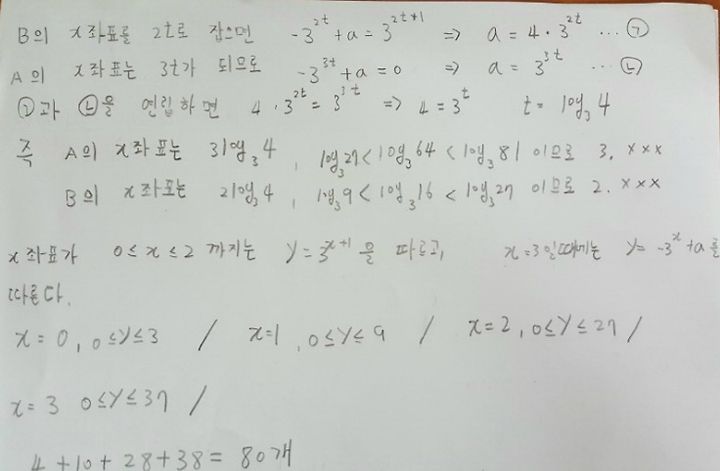 B의 x좌표를 2t로 잡으면 -3^{2t}+a=3^{2t+1} ⇒ a=4·3^{2t} ...㉠
A의 x좌표는 3t가 되므로 -3^{3t}+a=0 ⇒ a=3^{3t} ...㉡
㉠과 ㉡을 연립하면 4·3^{2t}=3^{3t} ⇒ 4=3^{t} t=log₃4
즉 A의 x좌표는 3log₃4, log₃27<log₃64<log₃81 이므로 3.×××
B의 x좌표는 2log₃4, log₃9<log₃16<log₃27 이므로 2.×××
x좌표가 0≤x≤2 까지는 y=3^{x+1}을 따르고, x=3일때에는 y=-3^{x}+a를
따른다.
x=0, 0≤y≤3 / x=1, 0≤y≤9 / x=2, 0≤y≤27 /
x=3 0≤y≤37 /
4+10+28+38=80개